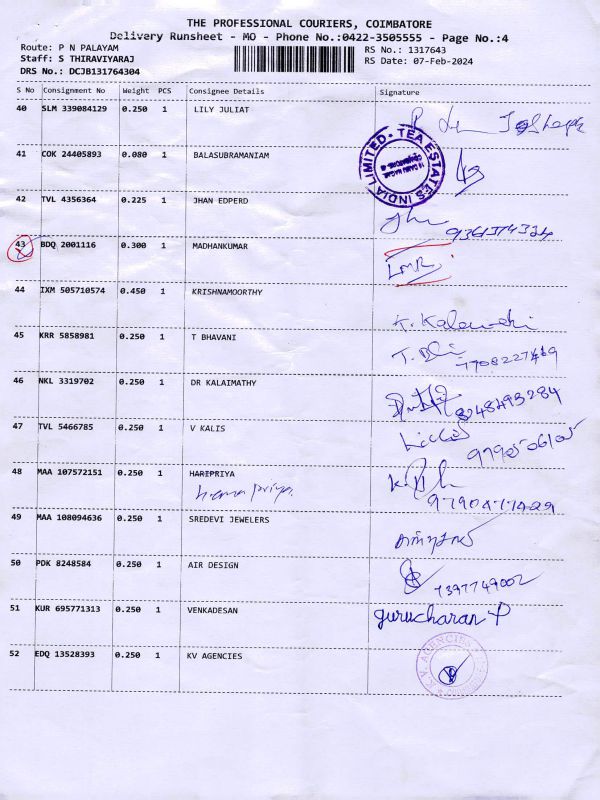 THE PROFESSIONAL COURIERS, COIMBATORE
Delivery Runsheet - MO - Phone No.:0422-3505555 - Page No.:4
Route: P N PALAYAM RS No.: 1317643
Staff: S THIRAVIYARAJ RS Date: 07-Feb-2024
DRS No.: DCJB131764304
S No Consignment No Weight PCS Consignee Details Signature
40 SLM 339084129 0.250 1 LILY JULIAT
41 COK 24405893 0.080 1 BALASUBRAMANIAM
TEA ESTATES INDIA LIMITED
42 TVL 4356364 0.225 1 JHAN EDPERD
43 BDQ 2001116 0.300 1 MADHANKUMAR
LMR
44 IXM 505710574 0.450 1 KRISHNAMOORTHY
45 KRR 5858981 0.250 1 T BHAVANI
46 NKL 3319702 0.250 1 DR KALAIMATHY
8248493284
47 TVL 5466785 0.250 1 V KALIS
48 MAA 107572151 0.250 1 HARIPRIYA
49 MAA 108094636 0.250 1 SREDEVI JEWELERS
50 PDK 8248584 0.250 1 AIR DESIGN
7397749002
51 KUR 695771313 0.250 1 VENKADESAN
gurucharan P
52 EDQ 13528393 0.250 1 KV AGENCIES
K.V. AGENCIES